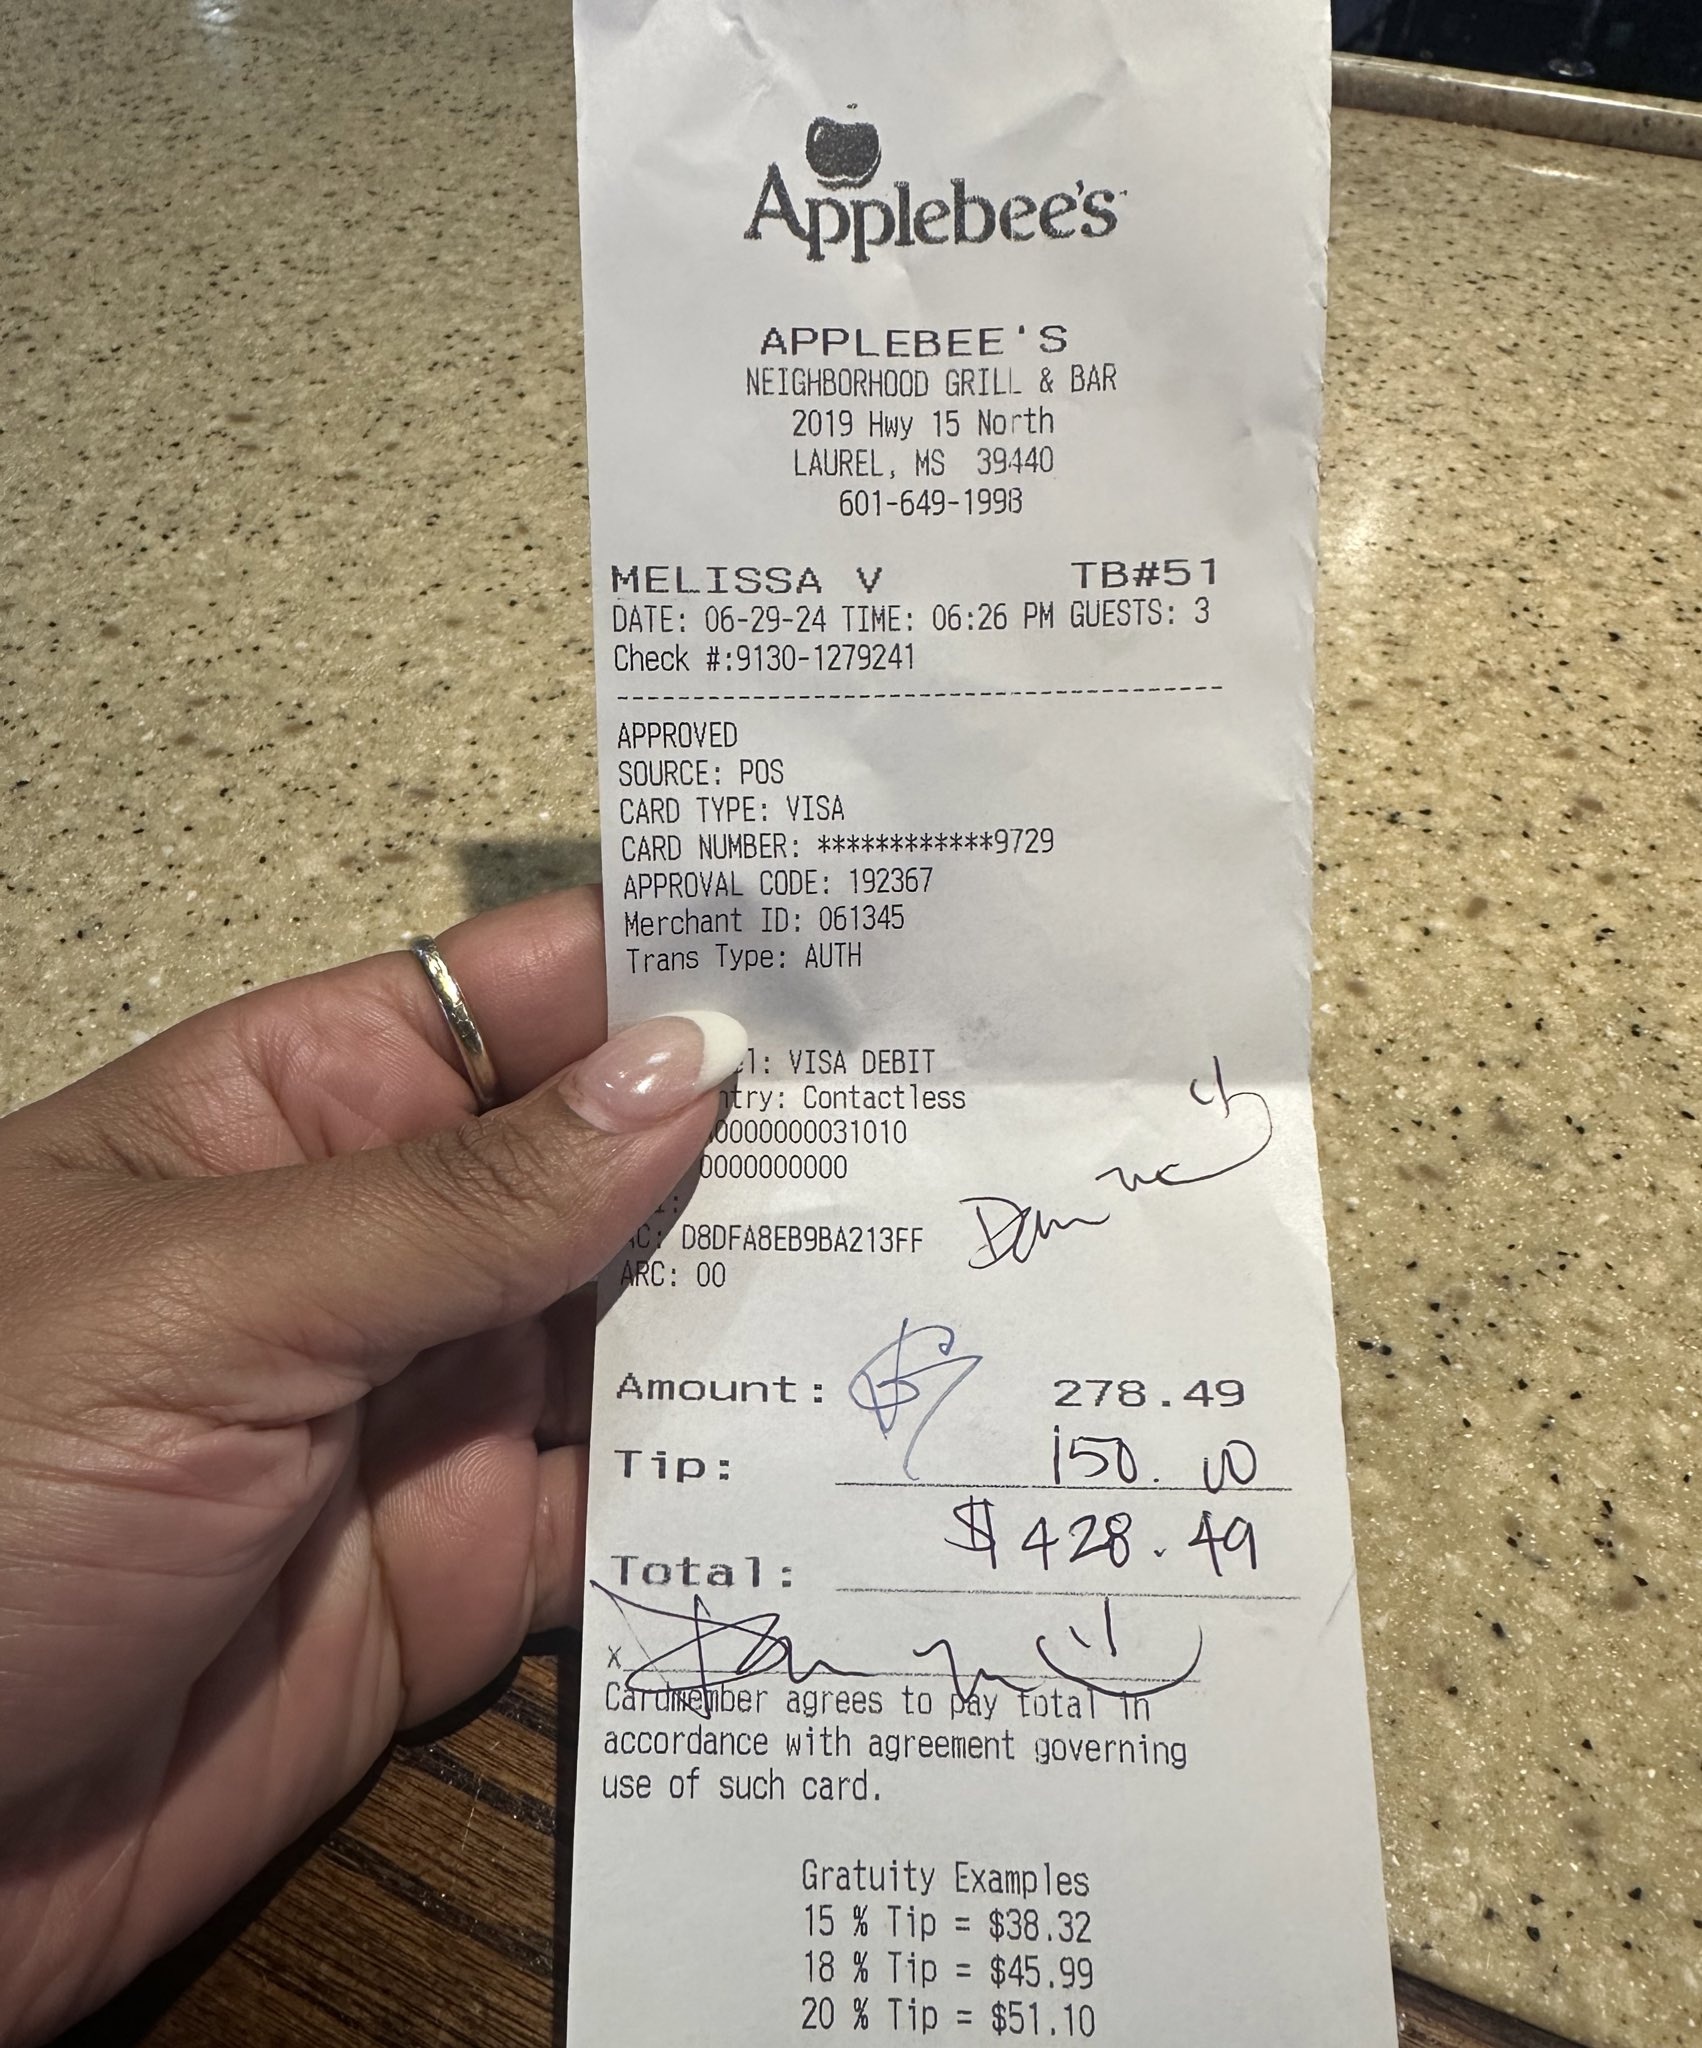 Applebee's
APPLEBEE'S
NEIGHBORHOOD GRILL & BAR
2019 Hwy 15 North
LAUREL, MS 39440
601-649-1998
MELISSA V TB#51
DATE: 06-29-24 TIME: 06:26 PM GUESTS: 3
Check #:9130-1279241
----------------------------------------
APPROVED
SOURCE: POS
CARD TYPE: VISA
CARD NUMBER: ************9729
APPROVAL CODE: 192367
Merchant ID: 061345
Trans Type: AUTH
el: VISA DEBIT
ntry: Contactless
0000000031010
0000000000
AC: D8DFA8EB9BA213FF
ARC: 00
Amount: 278.49
Tip: 150.00
$428.49
Total:
x
Cardmember agrees to pay total in
accordance with agreement governing
use of such card.
Gratuity Examples
15 % Tip = $38.32
18 % Tip = $45.99
20 % Tip = $51.10